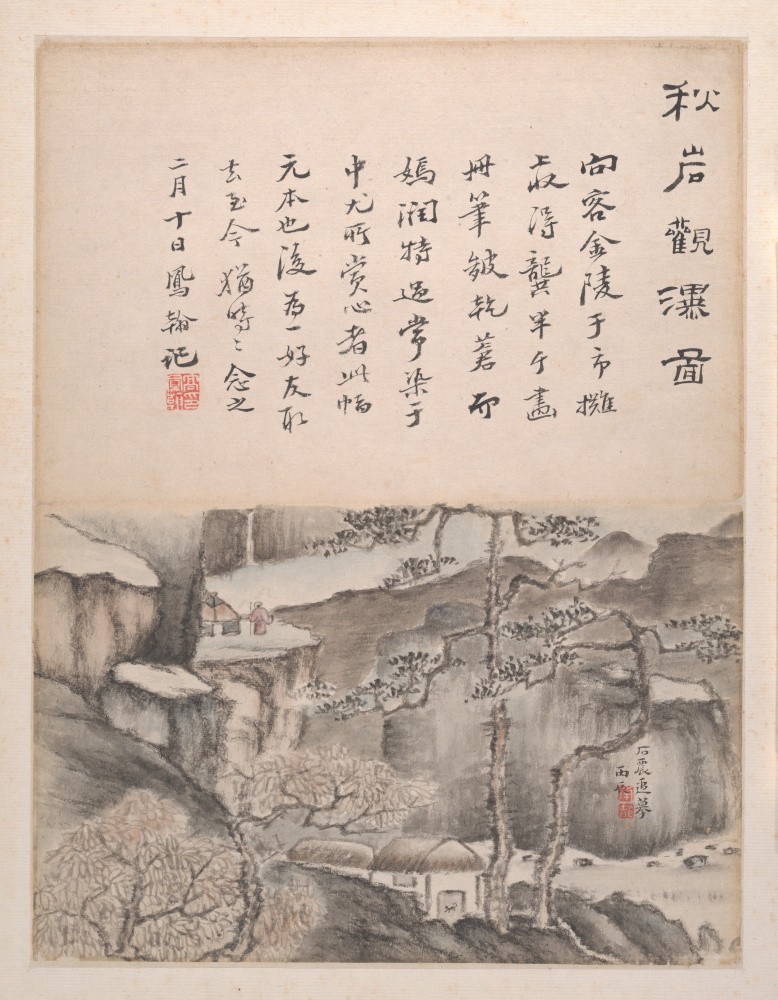 秋岩觀瀑圖
向客金陵于市攤
上收得龔半千畫
冊筆皴乾蒼而
嫣潤特逈常染于
中尤所賞心者此幅
元本也後為一好友取
去至今猶時〻念之
二月十日鳳翰記
石震追摹
丙辰